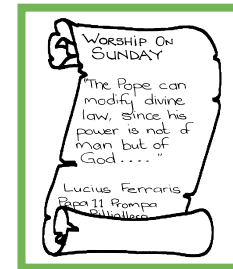 WORSHIP ON
SUNDAY
"The Pope can
modify divine
law, since his
power is not of
man but of
God...."
Lucius Ferraris
Papa 11 Prompa